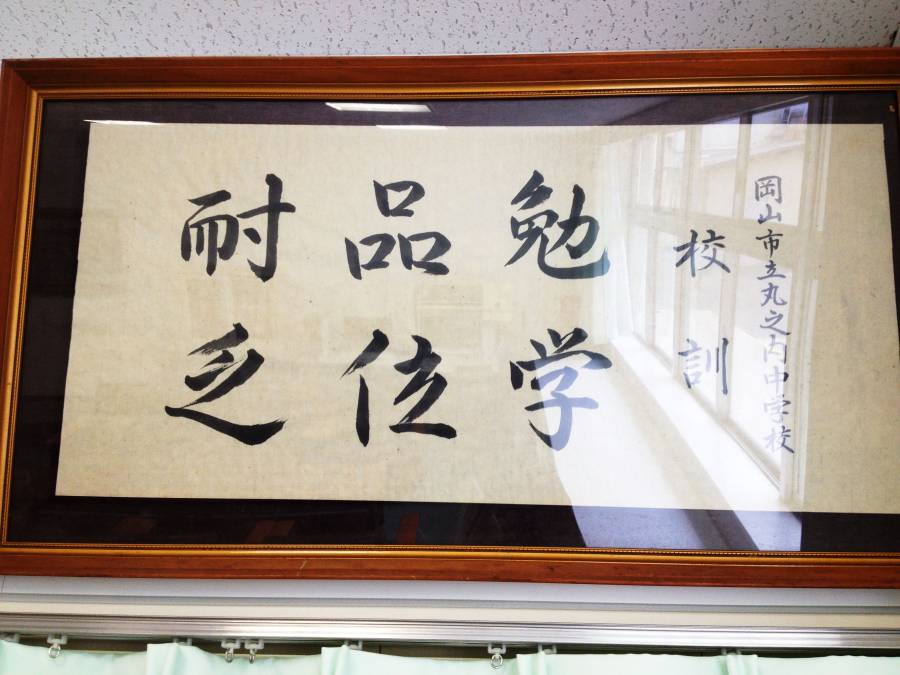 岡山市立丸之内中学校
校訓
勉学
品位
耐乏